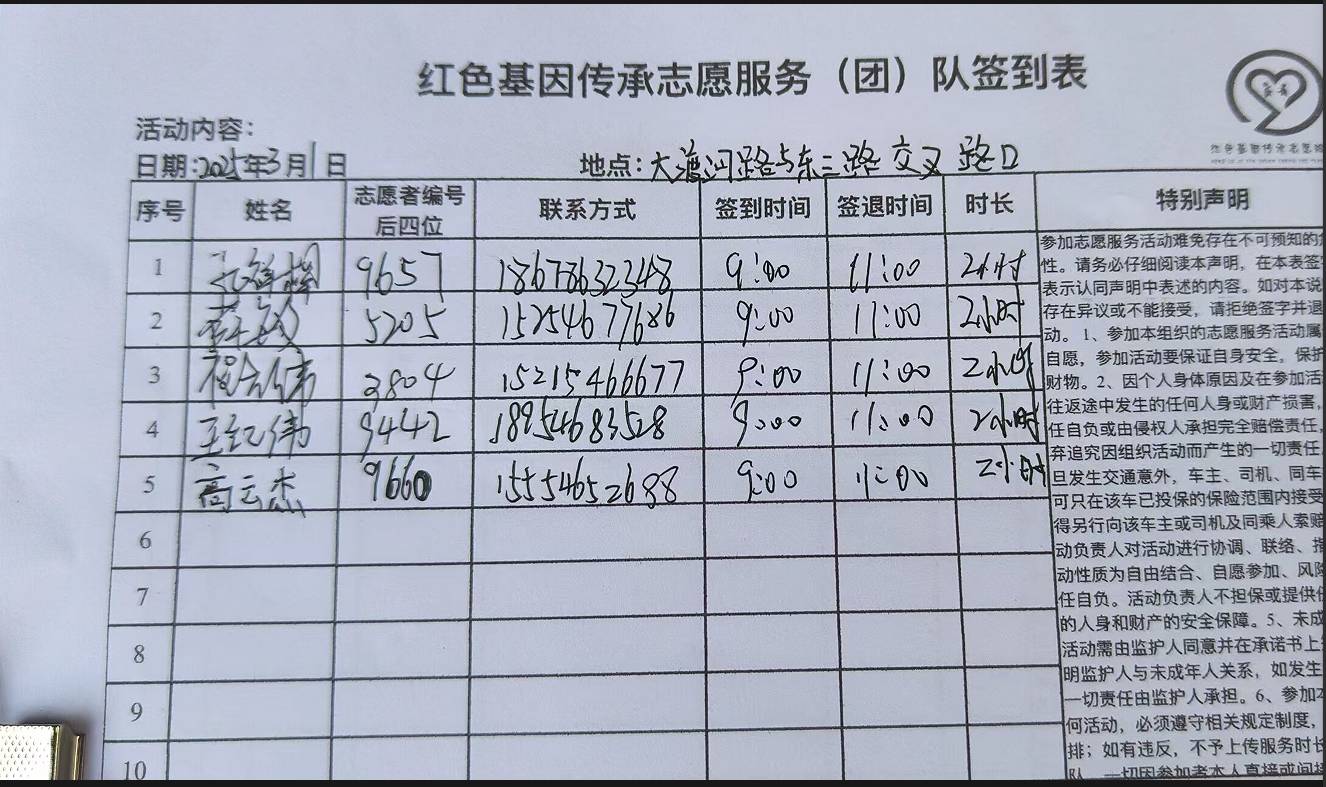 红色基因传承志愿服务（团）队签到表
活动内容：
日期：2025年3月1日
地点：大渡河路与东三路交叉路口
序号 姓名 志愿者编号后四位 联系方式 签到时间 签退时间 时长 特别声明
1 9657 18678632348 9:00 11:00 2小时
2 5205 15254677686 9:00 11:00 2小时
3 程会伟 3804 15215466677 9:00 11:00 2小时
4 王纪伟 9442 18954683528 9:00 11:00 2小时
5 高云杰 9660 15554652688 9:00 11:00 2小时
6
7
8
9
10
参加志愿服务活动难免存在不可预知的
性。请务必仔细阅读本声明，在本表签
表示认同声明中表述的内容。如对本说
存在异议或不能接受，请拒绝签字并退
动。1、参加本组织的志愿服务活动属
自愿，参加活动要保证自身安全，保护
财物。2、因个人身体原因及在参加活
往返途中发生的任何人身或财产损害，
任自负或由侵权人承担完全赔偿责任，
弃追究因组织活动而产生的一切责任
旦发生交通意外，车主、司机、同车
可只在该车已投保的保险范围内接受
得另行向该车主或司机及同乘人索赔
动负责人对活动进行协调、联络、指
动性质为自由结合、自愿参加、风险
任自负。活动负责人不担保或提供
的人身和财产的安全保障。5、未成
活动需由监护人同意并在承诺书上
明监护人与未成年人关系，如发生
一切责任由监护人承担。6、参加本
何活动，必须遵守相关规定制度，
排；如有违反，不予上传服务时长
队，一切因参加者本人直接或间接